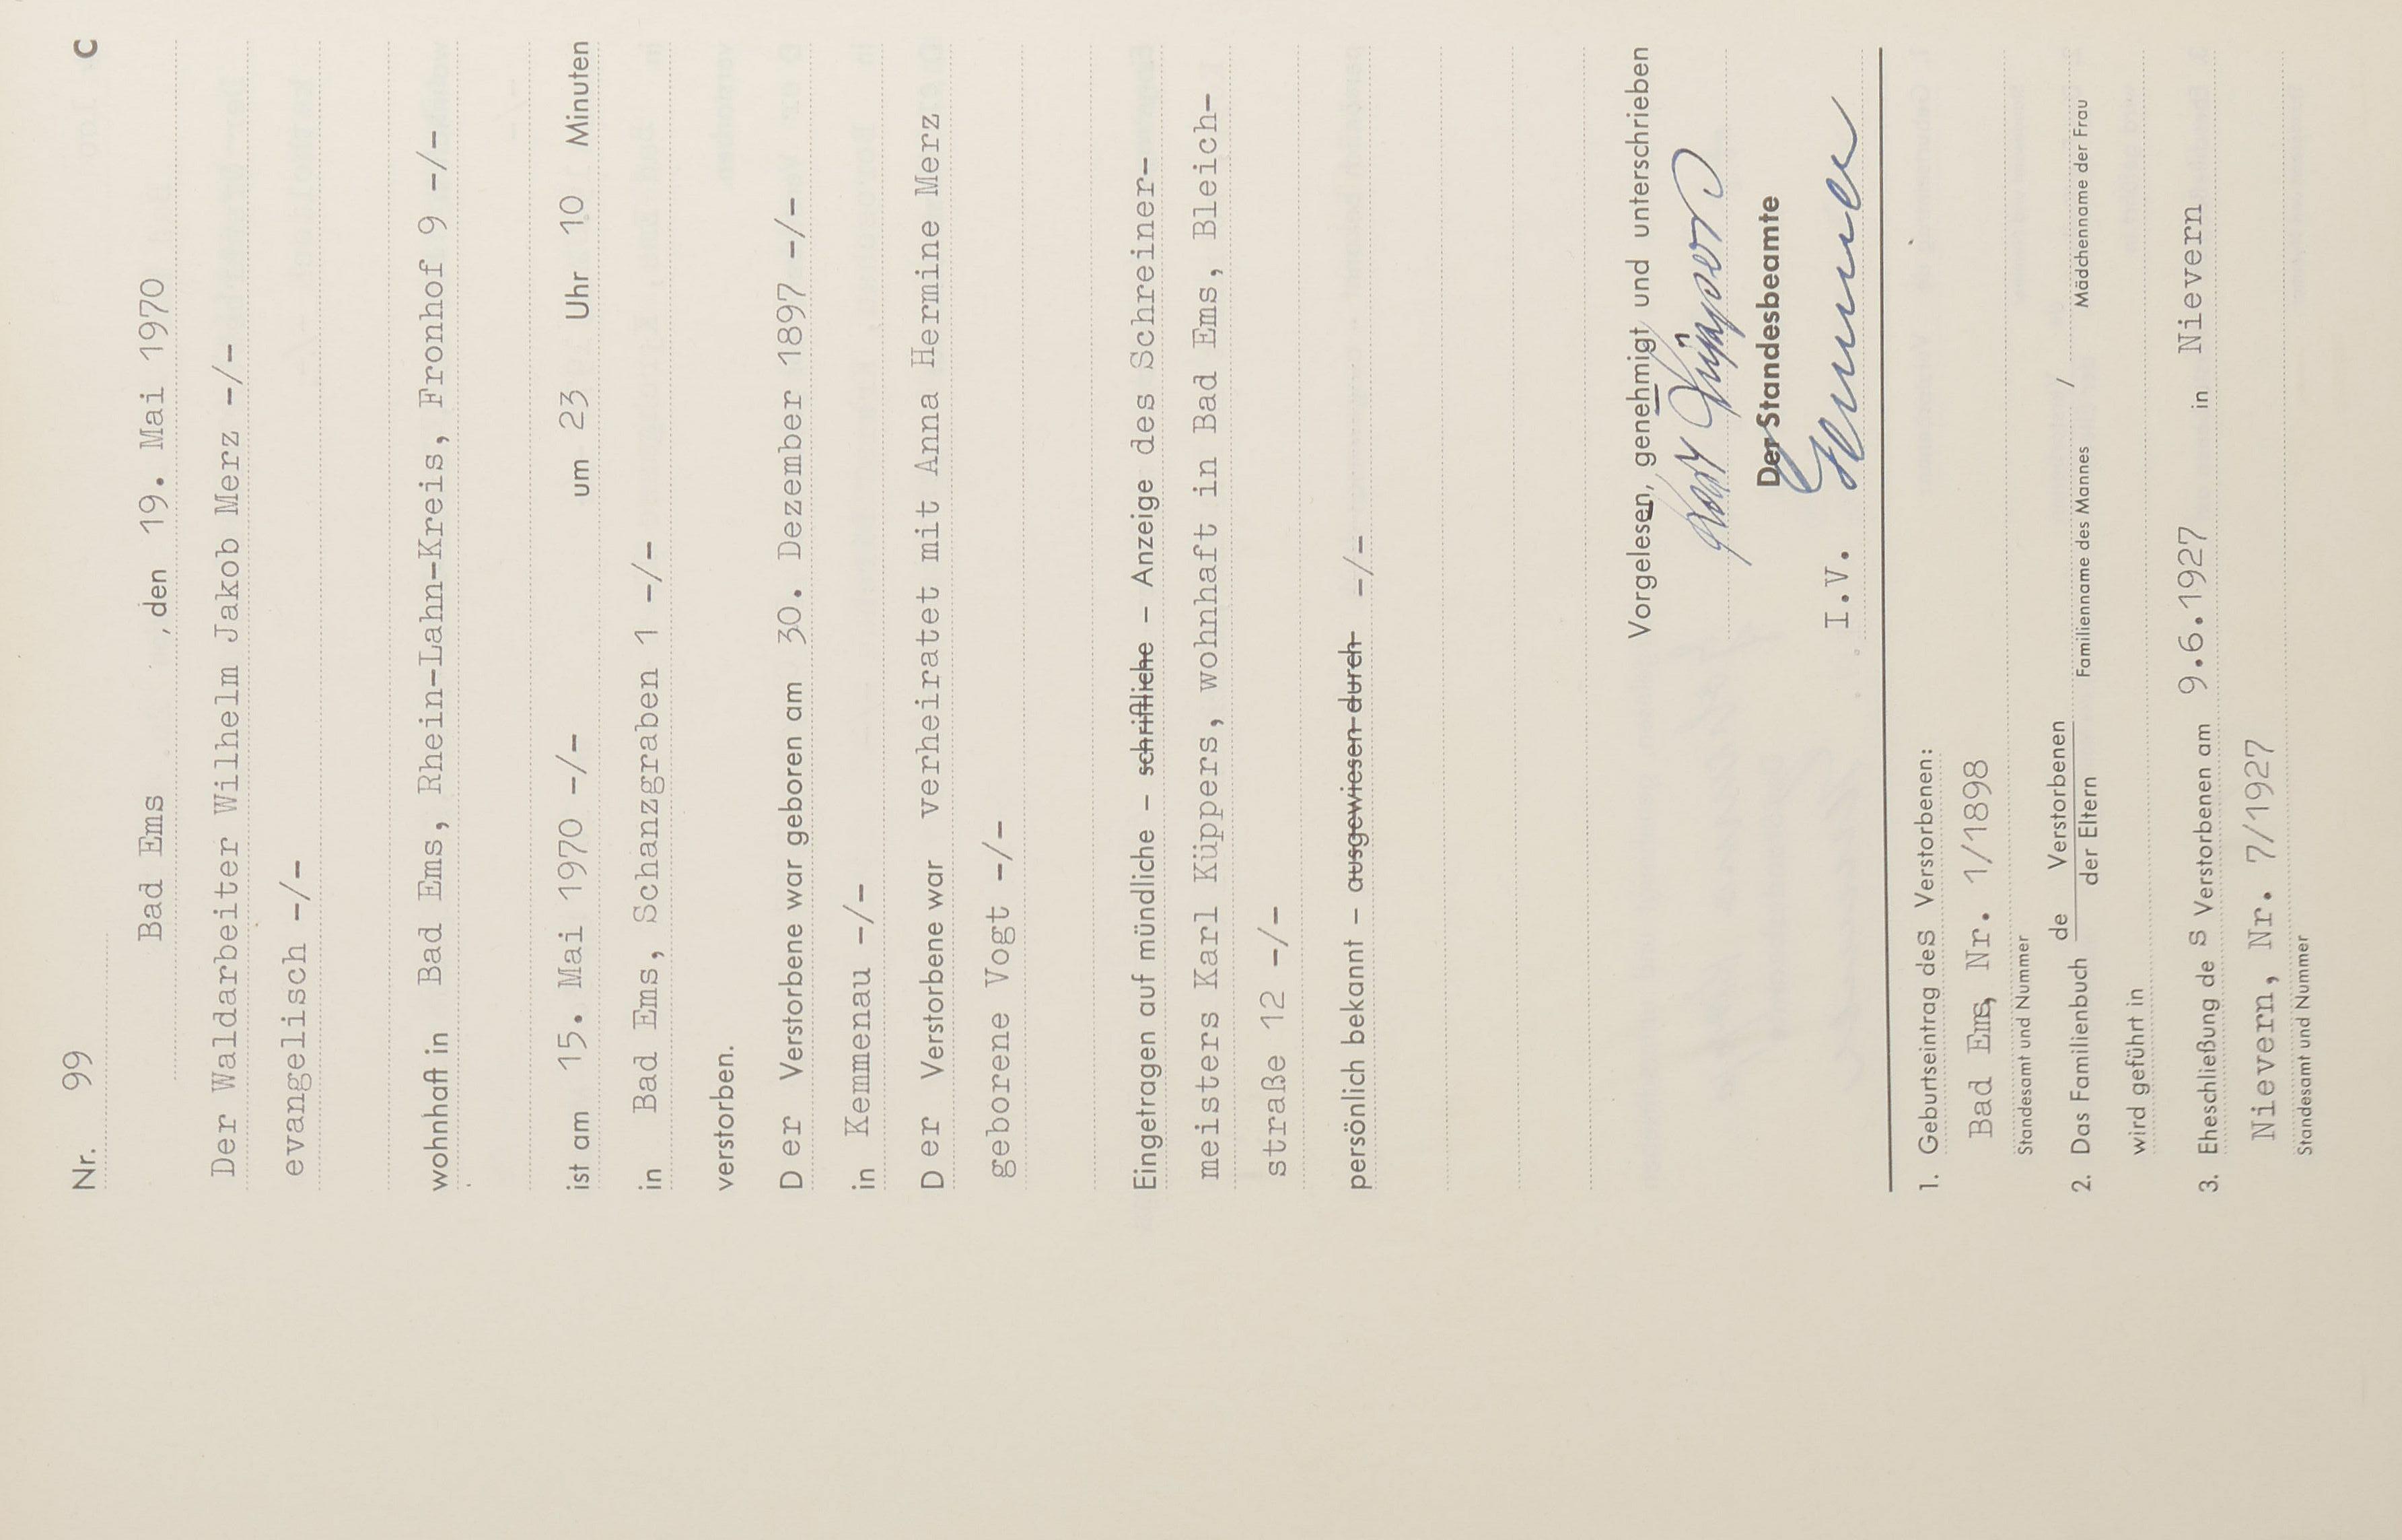 Nr. 99 C
Bad Ems , den 19. Mai 1970
Der Waldarbeiter Wilhelm Jakob Merz -/-
evangelisch -/-
wohnhaft in Bad Ems, Rhein-Lahn-Kreis, Fronhof 9 -/-
ist am 15. Mai 1970 -/- um 23 Uhr 10 Minuten
in Bad Ems, Schanzgraben 1 -/-
verstorben.
D er Verstorbene war geboren am 30. Dezember 1897 -/-
in Kemmenau -/-
D er Verstorbene war verheiratet mit Anna Hermine Merz
geborene Vogt -/-
Eingetragen auf mündliche – schriftliche – Anzeige des Schreiner-
meisters Karl Küppers, wohnhaft in Bad Ems, Bleich-
straße 12 -/-
persönlich bekannt – ausgewiesen durch -/-
Vorgelesen, genehmigt und unterschrieben
Karl Küppers
Der Standesbeamte
I.V.
1. Geburtseintrag des Verstorbenen:
Bad Ems, Nr. 1/1898
Standesamt und Nummer
2. Das Familienbuch de Verstorbenen
der Eltern
/
Familienname des Mannes Mädchenname der Frau
wird geführt in
3. Eheschließung de s Verstorbenen am 9.6.1927 in Nievern
Nievern, Nr. 7/1927
Standesamt und Nummer